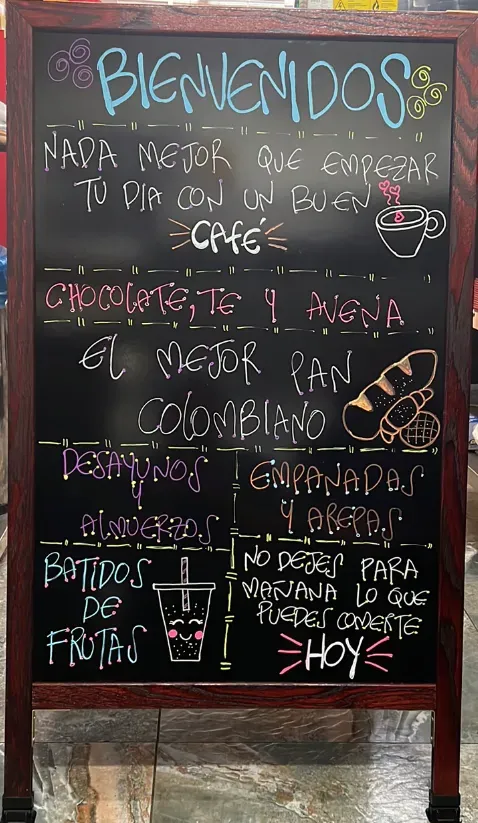 BIENVENIDOS
NADA MEJOR QUE EMPEZAR
TU DIA CON UN BUEN
CAFÉ
CHOCOLATE, TE Y AVENA
EL MEJOR PAN
COLOMBIANO
DESAYUNOS
Y
ALMUERZOS
EMPANADAS
Y AREPAS
BATIDOS
DE
FRUTAS
NO DEJES PARA
MAÑANA LO QUE
PUEDES COMERTE
HOY